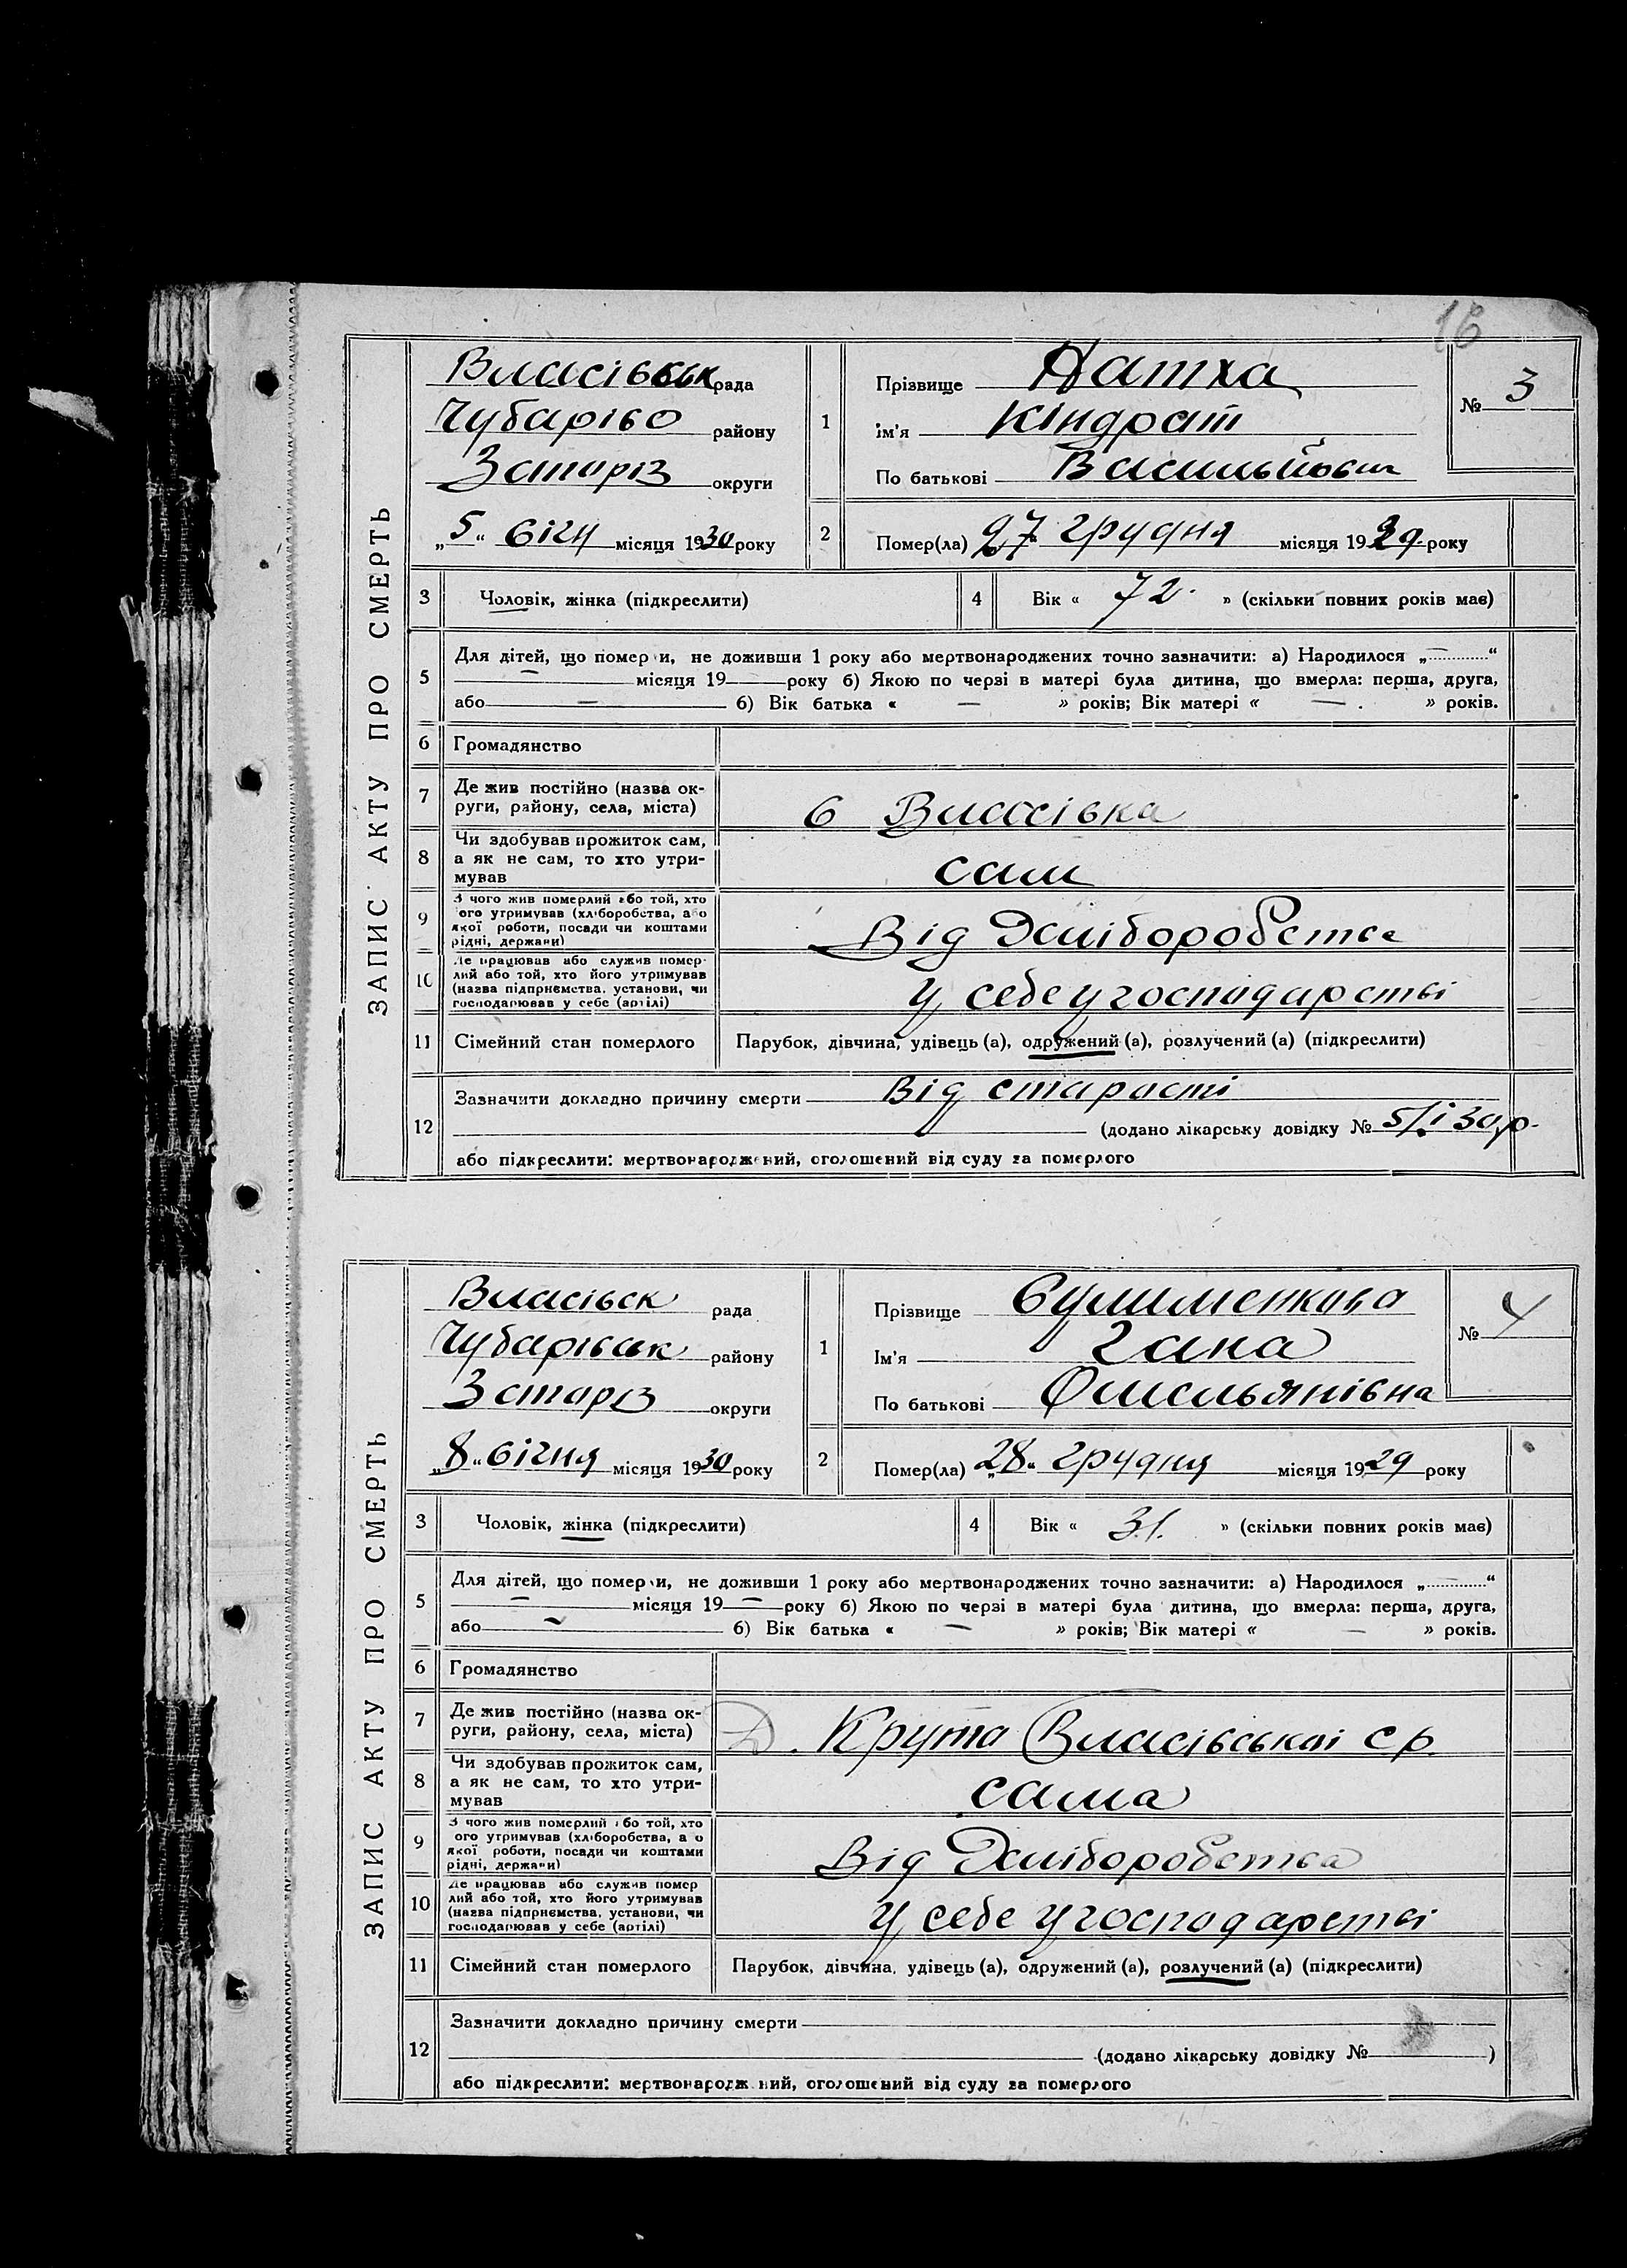 16
ЗАПИС АКТУ ПРО СМЕРТЬ
Власівськ рада
Чубаріво району
Запоріз округи
„5“ січн місяця 1930 року
1
Прізвище Натха
ім'я Кіндрат
По батькові Васильйович
№ 3
2
Помер(ла) 27 грудня місяця 1929 року
3 Чоловік, жінка (підкреслити)
4 Вік « 72 » (скільки повних років має)
5 Для дітей, що померли, не доживши 1 року або мертвонароджених точно зазначити: а) Народилося „—“
— місяця 19— року б) Якою по черзі в матері була дитина, що вмерла: перша, друга,
або — 6) Вік батька « — » років; Вік матері « — » років.
6 Громадянство
7 Де жив постійно (назва ок-
руги, району, села, міста)
с Власівка
8 Чи здобував прожиток сам,
а як не сам, то хто утри-
мував
сам
9 З чого жив померлий або той, хто
ого утримував (хліборобства, або
якої роботи, посади чи коштами
рідні, держави)
Від Хліборобства
10 Де працював або служив помер-
лий або той, хто його утримував
(назва підприємства, установи, чи
господарював у себе (артілі)
у себе у господарстві
11 Сімейний стан померлого Парубок, дівчина, удівець (а), одружений (а), розлучений (а) (підкреслити)
12 Зазначити докладно причину смерти Від старости
(додано лікарську довідку № 5/I 30 р.
або підкреслити: мертвонароджений, оголошений від суду за померлого
ЗАПИС АКТУ ПРО СМЕРТЬ
Власівск рада
Чубарівськ району
Запоріз округи
„8“ січня місяця 1930 року
1
Прізвище Сулименкова
Ім'я Гана
По батькові Омельянівна
№ 4
2
Помер(ла) „28“ грудня місяця 1929 року
3 Чоловік, жінка (підкреслити)
4 Вік « 31. » (скільки повних років має)
5 Для дітей, що померли, не доживши 1 року або мертвонароджених точно зазначити: а) Народилося „“
— місяця 19— року б) Якою по черзі в матері була дитина, що вмерла: перша, друга,
або — 6) Вік батька « — » років; Вік матері « — » років.
6 Громадянство
7 Де жив постійно (назва ок-
руги, району, села, міста)
Д. Крута Власівської с р.
8 Чи здобував прожиток сам,
а як не сам, то хто утри-
мував
сама
9 З чого жив померлий або той, хто
ого утримував (хліборобства, а о
якої роботи, посади чи коштами
рідні, держави)
Від Хліборобства
10 Де працював або служив помер
лий або той, хто його утримував
(назва підприємства, установи, чи
господарював у себе (артілі)
у себе у господарстві
11 Сімейний стан померлого Парубок, дівчина, удівець (а), одружений (а), розлучений (а) (підкреслити)
12 Зазначити докладно причину смерти
(додано лікарську довідку № )
або підкреслити: мертвонароджений, оголошений від суду за померлого